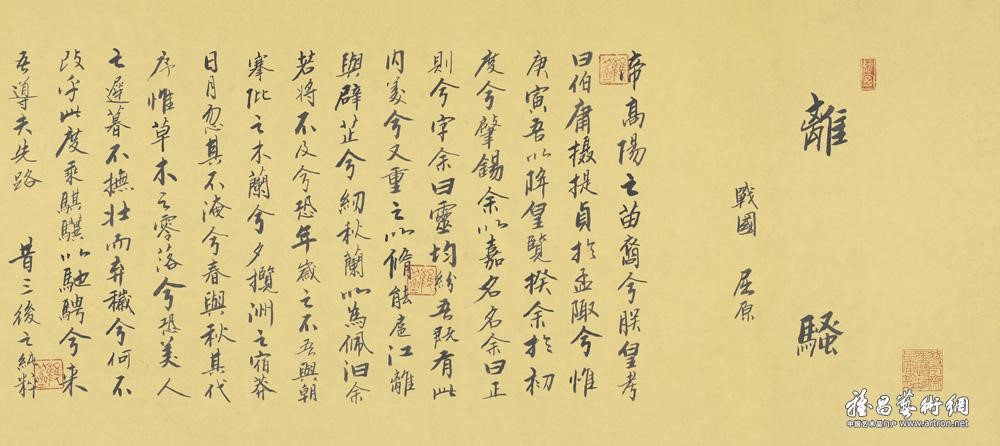 離騷
戰國 屈原
帝高陽之苗裔兮朕皇考
曰伯庸攝提貞於孟陬兮惟
庚寅吾以降皇覽揆余於初
度兮肇錫余以嘉名名余曰正
則兮字余曰靈均紛吾既有此
內美兮又重之以脩能扈江離
與辟芷兮紉秋蘭以為佩汩余
若將不及兮恐年歲之不吾與朝
搴阰之木蘭兮夕攬洲之宿莽
日月忽其不淹兮春與秋其代
序惟草木之零落兮恐美人
之遲暮不撫壯而棄穢兮何不
改乎此度乘騏驥以馳騁兮來
吾導夫先路 昔三後之純粹
雅昌藝術網
中国艺术品门户 www.artron.net